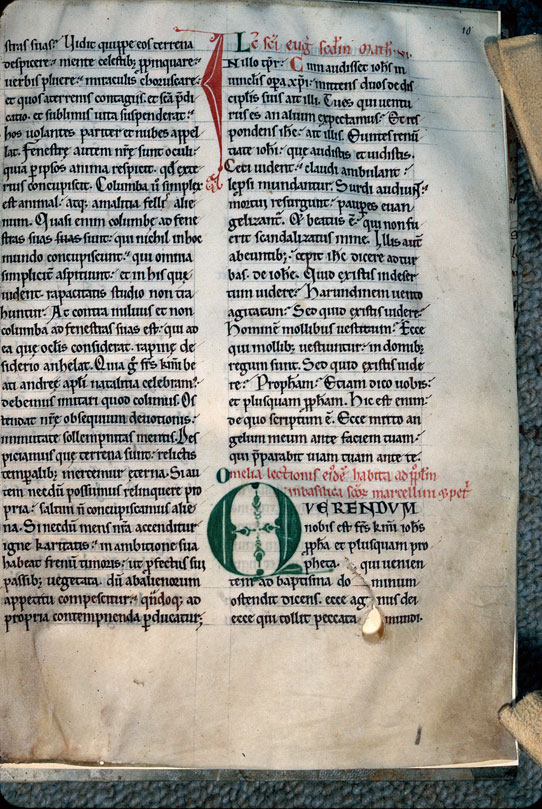 stras suas. Uidit quippe eos terrena
despicere. mente celestibꝫ ppinquare.
uerbis pluere. miraculis choruscare.
et quos a terrenis contagiis. et sc̄a p̄di
catio. et sublimis uita suspenderat.
hos uolantes pariter et nubes appel
lat. Fenestrę autem nr̄ę sunt oculi.
quia p ipsos anima respicit. qd̄ exte
rius concupiscit. Columba ū simplex
est animal. atqꝫ a malitia fellis alie
num. Quasi enim columbę ad fene
stras suas sunt. qui nichil in hoc
mundo concupiscunt. qui omnia
simplicit̄ aspiciunt. et in his quę
uident. rapacitatis studio non tra
huntur. At contra miluus et non
columba ad fenestras suas est. qui ad
ea quę oc̄lis considerat. rapinę de
siderio anhelat. Quia g̊ fr̄s km̄i be
ati andreę apl̄i natalitia celebram᷒.
debemus imitari quod colimus. Os
tendat nr̄ę obsequium deuotionis.
inmutatę sollempnitas mentis. Des
piciamus quę terrena sunt. relictis
temp̄alibꝫ mercemur ęterna. Si au
tem necdū possumus relinquere pro
pria. saltim ū concupiscamus alie
na. Si necdū mens nr̄a accenditur
igne karitatis. in ambitione sua
habeat frenū timoris. ut p̄fectus sui
passibꝫ uegetata. dū ab alienorum
appetitu compescitur. qn̄doqꝫ ad
propria contempnenda p̄ducatur.
10
Lc̄ sc̄i euḡ scd̄m Math
IN illo tp̄r. Cum audisset ioh̄s in
uinclis opa xp̄i. mittens duos de dis
cipulis suis ait illi. Tu es qui ventu
rus es an alium expectamus. Et res
pondens ih̄c. ait illis. Euntes renū
tiate ioh̄i. quę audistis et uidistis.
Ceci uident. claudi ambulant.
lep̄si mundantur. Surdi audiunt.
mortui resurgunt. paup̄es euan
gelizant᷒. Et beatus ē. qui non fu
erit scandalizatus in me. Illis aut̄
abeuntibꝫ. cepit ih̄c dicere ad tur
bas. de ioh̄e. Quid existis in deser
tum uidere. Harundinem uento
agitatam. Sed quid existis uidere.
Hominē mollibus uestitum. Ecce
qui mollibꝫ uestiuntur. in domibꝫ
regum sunt. Sed quid existis uide
re. Prophām. Etiam dico uobis.
et plusquam pp̄ham. Hic est enim
de quo scriptum ē. Ecce mitto an
gelum meum ante faciem tuam.
qui p̄parabit uiam tuam ante te.
Omelia lectionis eide᷒ habita ad pp̄lm
in basilica sc̄or᷒ marcellini & petri
QUERENDUM
nobis est fr̄s km̄i ioh̄s
pp̄ha et plusquam pro
pheta. qui uenien
tem ad baptisma do minum
ostendit dicens. ecce ag nus dei
ecce qui tollit peccata mundi.